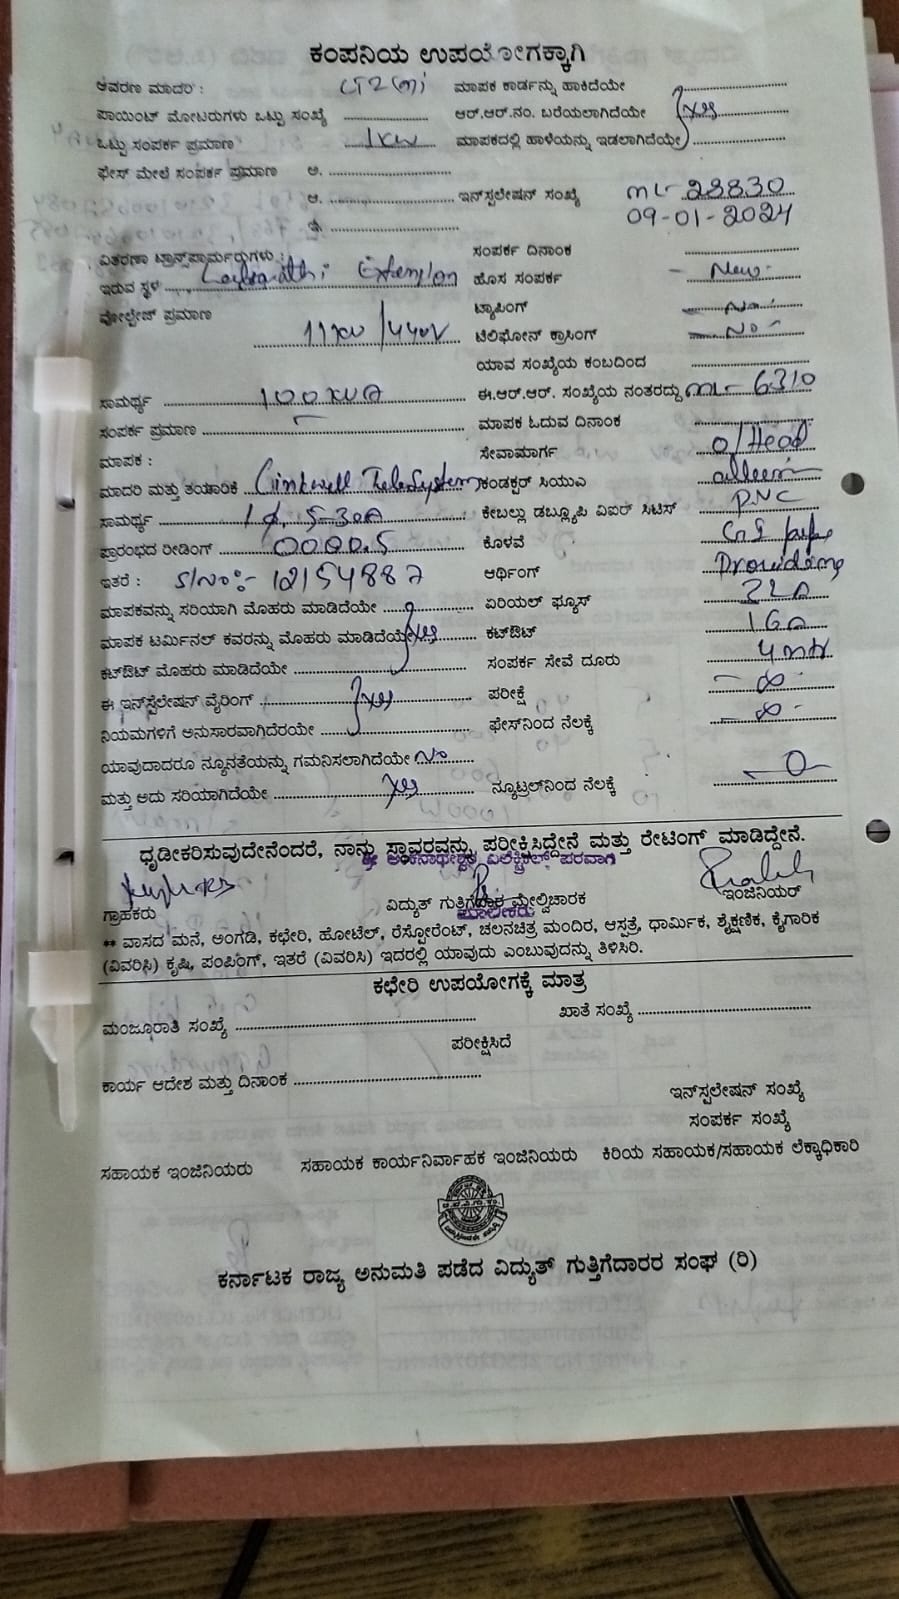 ಕಂಪನಿಯ ಉಪಯೋಗಕ್ಕಾಗಿ
ಆವರಣ ಮಾದರಿ : LT2(a)i ಮಾಪಕ ಕಾರ್ಡನ್ನು ಹಾಕಿದೆಯೇ
ಪಾಯಿಂಟ್ ಮೋಟರುಗಳು ಒಟ್ಟು ಸಂಖ್ಯೆ ಆರ್.ಆರ್.ನಂ. ಬರೆಯಲಾಗಿದೆಯೇ yes
ಒಟ್ಟು ಸಂಪರ್ಕ ಪ್ರಮಾಣ 1KW ಮಾಪಕದಲ್ಲಿ ಹಾಳೆಯನ್ನು ಇಡಲಾಗಿದೆಯೇ
ಫೇಸ್ ಮೇಲೆ ಸಂಪರ್ಕ ಪ್ರಮಾಣ ಅ.
ಆ. ಇನ್‌ಸ್ಟಲೇಷನ್ ಸಂಖ್ಯೆ ML-23830
ಇ. 09-01-2024
ವಿತರಣಾ ಟ್ರಾನ್ಸ್‌ಫಾರ್ಮರುಗಳು : ಸಂಪರ್ಕ ದಿನಾಂಕ
ಇರುವ ಸ್ಥಳ Extension ಹೊಸ ಸಂಪರ್ಕ - New -
ವೋಲ್ಟೇಜ್ ಪ್ರಮಾಣ 11KV/440V ಟ್ಯಾಪಿಂಗ್ - No -
ಟೆಲಿಫೋನ್ ಕ್ರಾಸಿಂಗ್ - No -
ಯಾವ ಸಂಖ್ಯೆಯ ಕಂಬದಿಂದ
ಸಾಮರ್ಥ್ಯ 100KVA ಈ.ಆರ್.ಆರ್. ಸಂಖ್ಯೆಯ ನಂತರದ್ದು ML-6310
ಸಂಪರ್ಕ ಪ್ರಮಾಣ ಮಾಪಕ ಓದುವ ದಿನಾಂಕ
ಮಾಪಕ : ಸೇವಾಮಾರ್ಗ O/Head
ಮಾದರಿ ಮತ್ತು ತಯಾರಿಕೆ TeleSystem ಕಂಡಕ್ಟರ್ ಸಿಯುಎ
ಸಾಮರ್ಥ್ಯ 1φ, 5-30A ಕೇಬಲ್ಲು ಡಬ್ಲ್ಯೂಪಿ ವಿಐಆರ್ ಸಿಟಿಸ್ PVC
ಪ್ರಾರಂಭದ ರೀಡಿಂಗ್ 0000.5 ಕೊಳವೆ GI pipe
ಇತರೆ : S/No:- 12154887 ಆರ್ಥಿಂಗ್ Providing
ಮಾಪಕವನ್ನು ಸರಿಯಾಗಿ ಮೊಹರು ಮಾಡಿದೆಯೇ ಏರಿಯಲ್ ಫ್ಯೂಸ್
ಮಾಪಕ ಟರ್ಮಿನಲ್ ಕವರನ್ನು ಮೊಹರು ಮಾಡಿದೆಯೇ yes ಕಟ್‌ಔಟ್ 16A
ಕಟ್‌ಔಟ್ ಮೊಹರು ಮಾಡಿದೆಯೇ ಸಂಪರ್ಕ ಸೇವೆ ದೂರು 4mtr
ಈ ಇನ್‌ಸ್ಟಲೇಷನ್ ವೈರಿಂಗ್ yes ಪರೀಕ್ಷೆ - ∞ -
ನಿಯಮಗಳಿಗೆ ಅನುಸಾರವಾಗಿದೆರಯೇ ಫೇಸ್‌ನಿಂದ ನೆಲಕ್ಕೆ - ∞ -
ಯಾವುದಾದರೂ ನ್ಯೂನತೆಯನ್ನು ಗಮನಿಸಲಾಗಿದೆಯೇ No
ಮತ್ತು ಅದು ಸರಿಯಾಗಿದೆಯೇ yes ನ್ಯೂಟ್ರಲ್‌ನಿಂದ ನೆಲಕ್ಕೆ - 0 -
ಧೃಡೀಕರಿಸುವುದೇನೆಂದರೆ, ನಾನು ಸ್ಥಾವರವನ್ನು ಪರೀಕ್ಷಿಸಿದ್ದೇನೆ ಮತ್ತು ರೇಟಿಂಗ್ ಮಾಡಿದ್ದೇನೆ.
ಶ್ರೀ ಅಂಕನಾಥೇಶ್ವರ ಎಲೆಕ್ಟ್ರಿಕಲ್ಸ್ ಪರವಾಗಿ
ಗ್ರಾಹಕರು ವಿದ್ಯುತ್ ಗುತ್ತಿಗೆದಾರ ಮೇಲ್ವಿಚಾರಕ ಇಂಜಿನಿಯರ್
ಮಾಲೀಕರು
** ವಾಸದ ಮನೆ, ಅಂಗಡಿ, ಕಛೇರಿ, ಹೋಟೆಲ್, ರೆಸ್ಟೋರೆಂಟ್, ಚಲನಚಿತ್ರ ಮಂದಿರ, ಆಸ್ಪತ್ರೆ, ಧಾರ್ಮಿಕ, ಶೈಕ್ಷಣಿಕ, ಕೈಗಾರಿಕ
(ವಿವರಿಸಿ) ಕೃಷಿ, ಪಂಪಿಂಗ್, ಇತರೆ (ವಿವರಿಸಿ) ಇದರಲ್ಲಿ ಯಾವುದು ಎಂಬುವುದನ್ನು ತಿಳಿಸಿರಿ.
ಕಛೇರಿ ಉಪಯೋಗಕ್ಕೆ ಮಾತ್ರ
ಮಂಜೂರಾತಿ ಸಂಖ್ಯೆ ಖಾತೆ ಸಂಖ್ಯೆ
ಪರೀಕ್ಷಿಸಿದೆ
ಕಾರ್ಯ ಆದೇಶ ಮತ್ತು ದಿನಾಂಕ
ಇನ್‌ಸ್ಪಲೇಷನ್ ಸಂಖ್ಯೆ
ಸಂಪರ್ಕ ಸಂಖ್ಯೆ
ಸಹಾಯಕ ಇಂಜಿನಿಯರು ಸಹಾಯಕ ಕಾರ್ಯನಿರ್ವಾಹಕ ಇಂಜಿನಿಯರು ಕಿರಿಯ ಸಹಾಯಕ/ಸಹಾಯಕ ಲೆಕ್ಕಾಧಿಕಾರಿ
ಕರ್ನಾಟಕ ರಾಜ್ಯ ಅನುಮತಿ ಪಡೆದ ವಿದ್ಯುತ್ ಗುತ್ತಿಗೆದಾರರ ಸಂಘ (ರಿ)